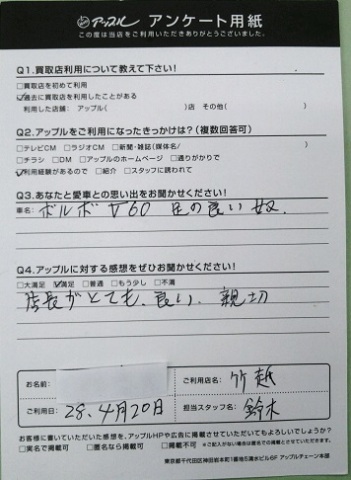 アップル アンケート用紙
この度は当店をご利用いただきありがとうございました。
Q1.買取店利用について教えて下さい!
□買取店を初めて利用
☑過去に買取店を利用したことがある
利用した店舗: アップル( )店 その他( )
Q2.アップルをご利用になったきっかけは?(複数回答可)
□テレビCM □ラジオCM □新聞・雑誌(媒体名/ )
□チラシ □DM □アップルのホームページ □通りがかりで
☑利用経験があるので □紹介 □スタッフに誘われて
Q3.あなたと愛車との思い出をお聞かせください!
車名: ボルボ V60 足の良い奴.
Q4.アップルに対する感想をぜひお聞かせください!
□大満足 ☑満足 □普通 □もう少し □不満
店長がとても、良い、親切
お名前:
ご利用店名: 竹越
ご利用日: 28、4月20日
担当スタッフ名: 鈴木
お客様に書いていただいた感想を、アップルHPや広告に掲載させていただいてもよろしいでしょうか?
□実名で掲載可 □匿名なら掲載可 □掲載不可
※ご記入がない場合は匿名での掲載とさせていただきます。
東京都千代田区神田岩本町1番地岩清水ビル6F アップルチェーン本部